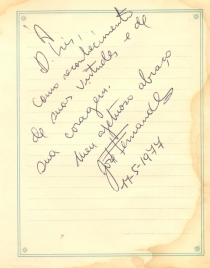 À
D. Iris,
como reconhecimento
de suas virtudes e de
sua coragem.
Meu afetuoso abraço
José Fernandes
14-5-1977